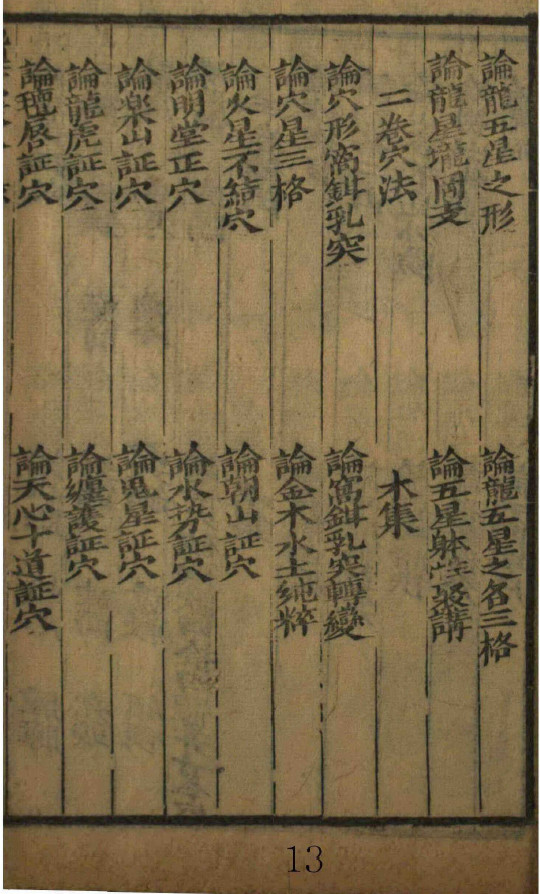 論龍五星之形　論龍五星之名三格
論龍星瓏岡支　論五星躰性裒講
二卷穴法　木集
論穴形窩鉗乳突　論窩鉗乳突轉變
論穴星三格　論金木水土純粹
論火星不結穴　論朝山証穴
論明堂正穴　論水势証穴
論楽山証穴　論鬼星証穴
論龍虎証穴　論纏護証穴
論氊唇証穴　論天心十道証穴
13